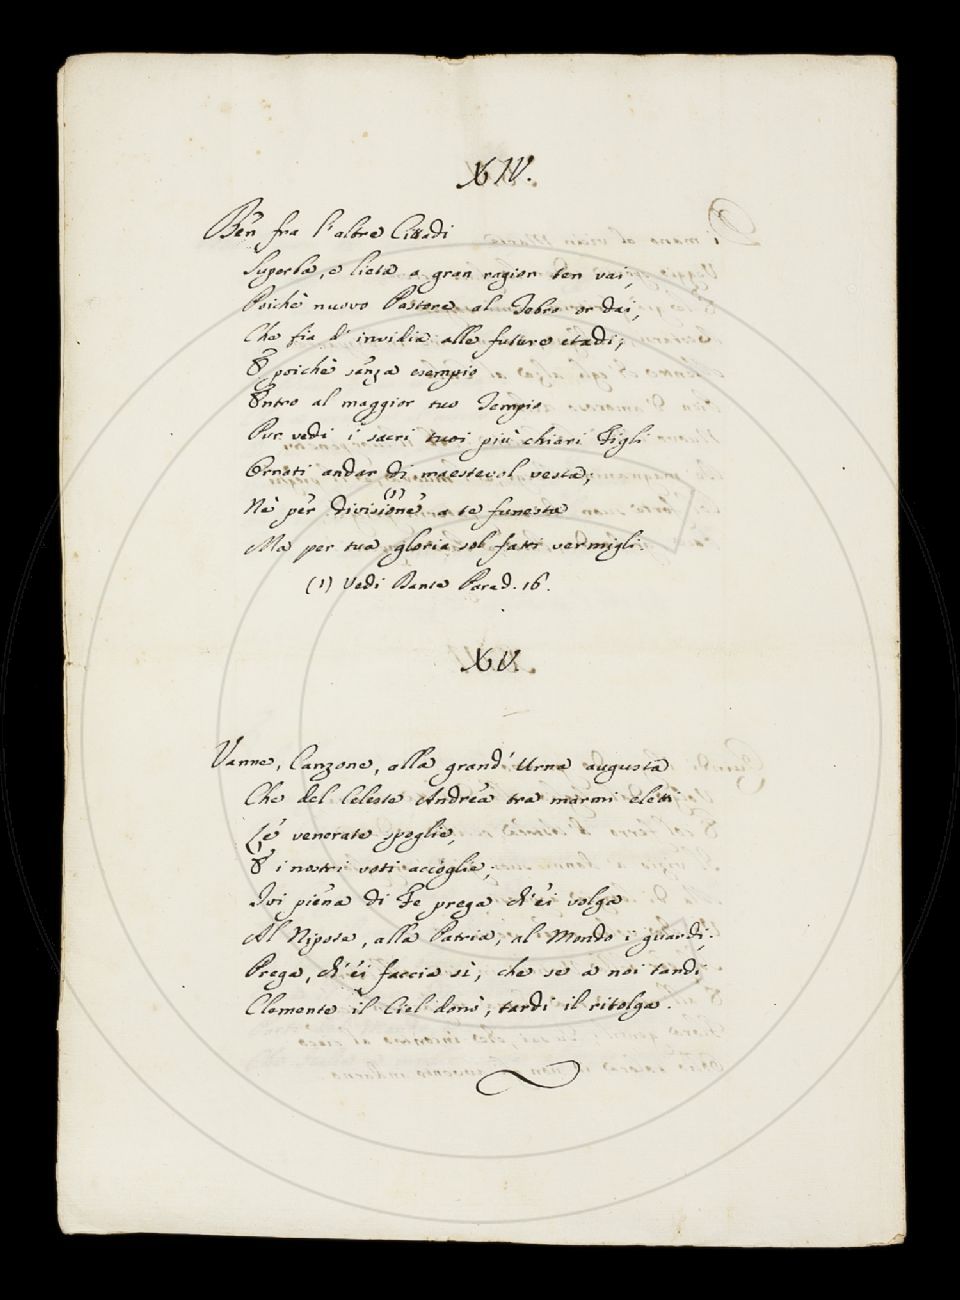 XIV.
Ben fra l'altre Cittadi
Superba, e lieta a gran ragion ten vai,
Poichè nuovo Pastore al Tebro or dai,
Che fia d'invidia alle future etadi;
E poichè senza esempio
Entro al maggior tuo Tempio
Pur vedi i sacri tuoi più chiari Figli
Ornati andar di maestevol vesta;
Nè per divisione (1) a te funesta
Ma per tua gloria sol fatti vermigli.
(1) Vedi Dante Parad. 16.
XV.
Vanne, Canzone, alla grand'Urna augusta
Che del Celeste Andrea tra marmi eletti
Le venerate spoglie,
E i nostri voti accoglie;
Ivi piena di Fe prega ch'ei volga
Al Nipote, alla Patria, al Mondo i guardi;
Prega, ch'ei faccia sì, che se a noi tardi
Clemente il Ciel donò, tardi il ritolga.